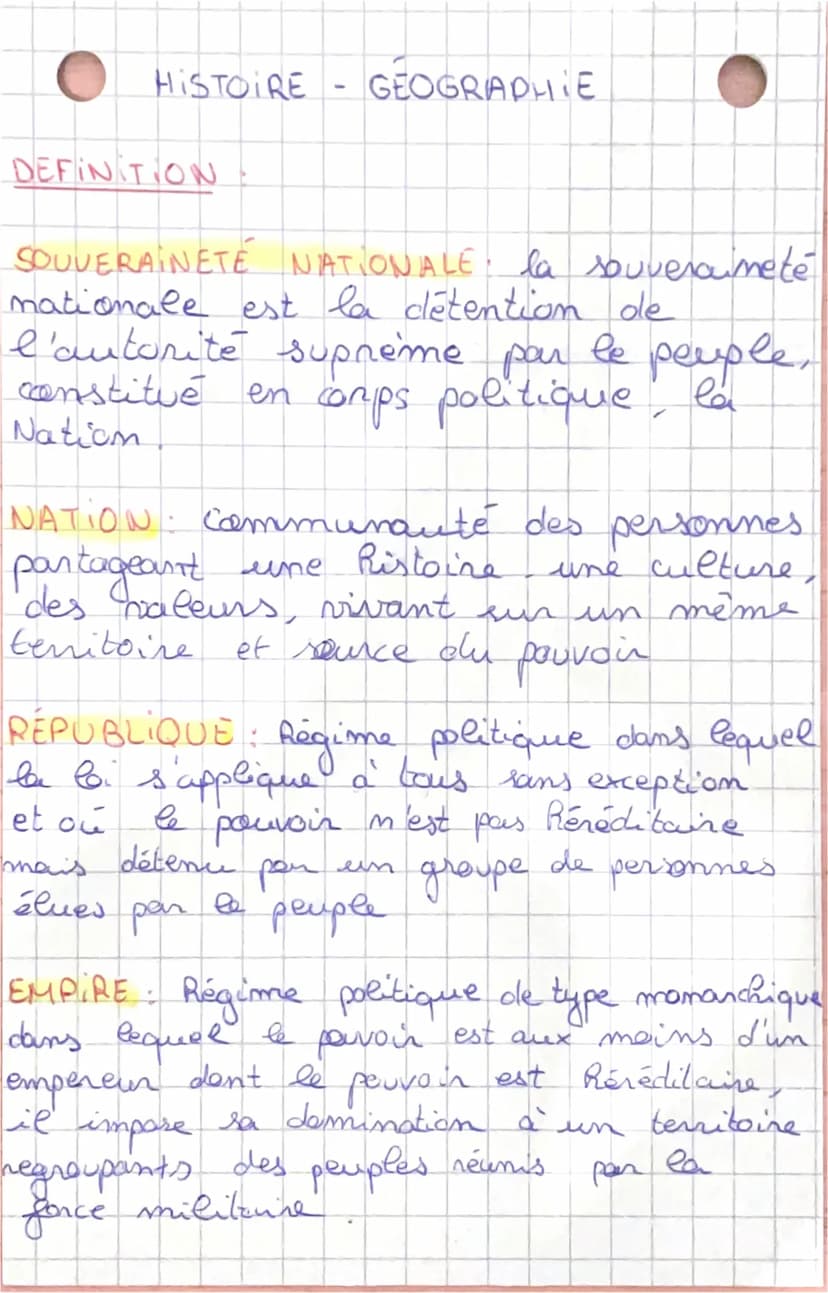 HiSTOiRE - GÉOGRAPHiE
DEFiNiTiON :
SOUVERAiNETÉ NATiONALE : la souveraineté
nationale est la détention de
l'autorité suprême par le peuple,
constitué en corps politique, la
Nation.
NATiON : Communauté des personnes
partageant une histoire, une culture,
des valeurs, vivant sur un même
territoire et source du pouvoir
RÉPUBLiQUE : Régime politique dans lequel
la loi s'applique à tous sans exception
et où le pouvoir n'est pas héréditaire
mais détenu par un groupe de personnes
élues par le peuple
EMPiRE : Régime politique de type monarchique
dans lequel le pouvoir est aux mains d'un
empereur dont le pouvoir est héréditaire,
il impose sa domination à un territoire
regroupants des peuples réunis par la
force militaire.